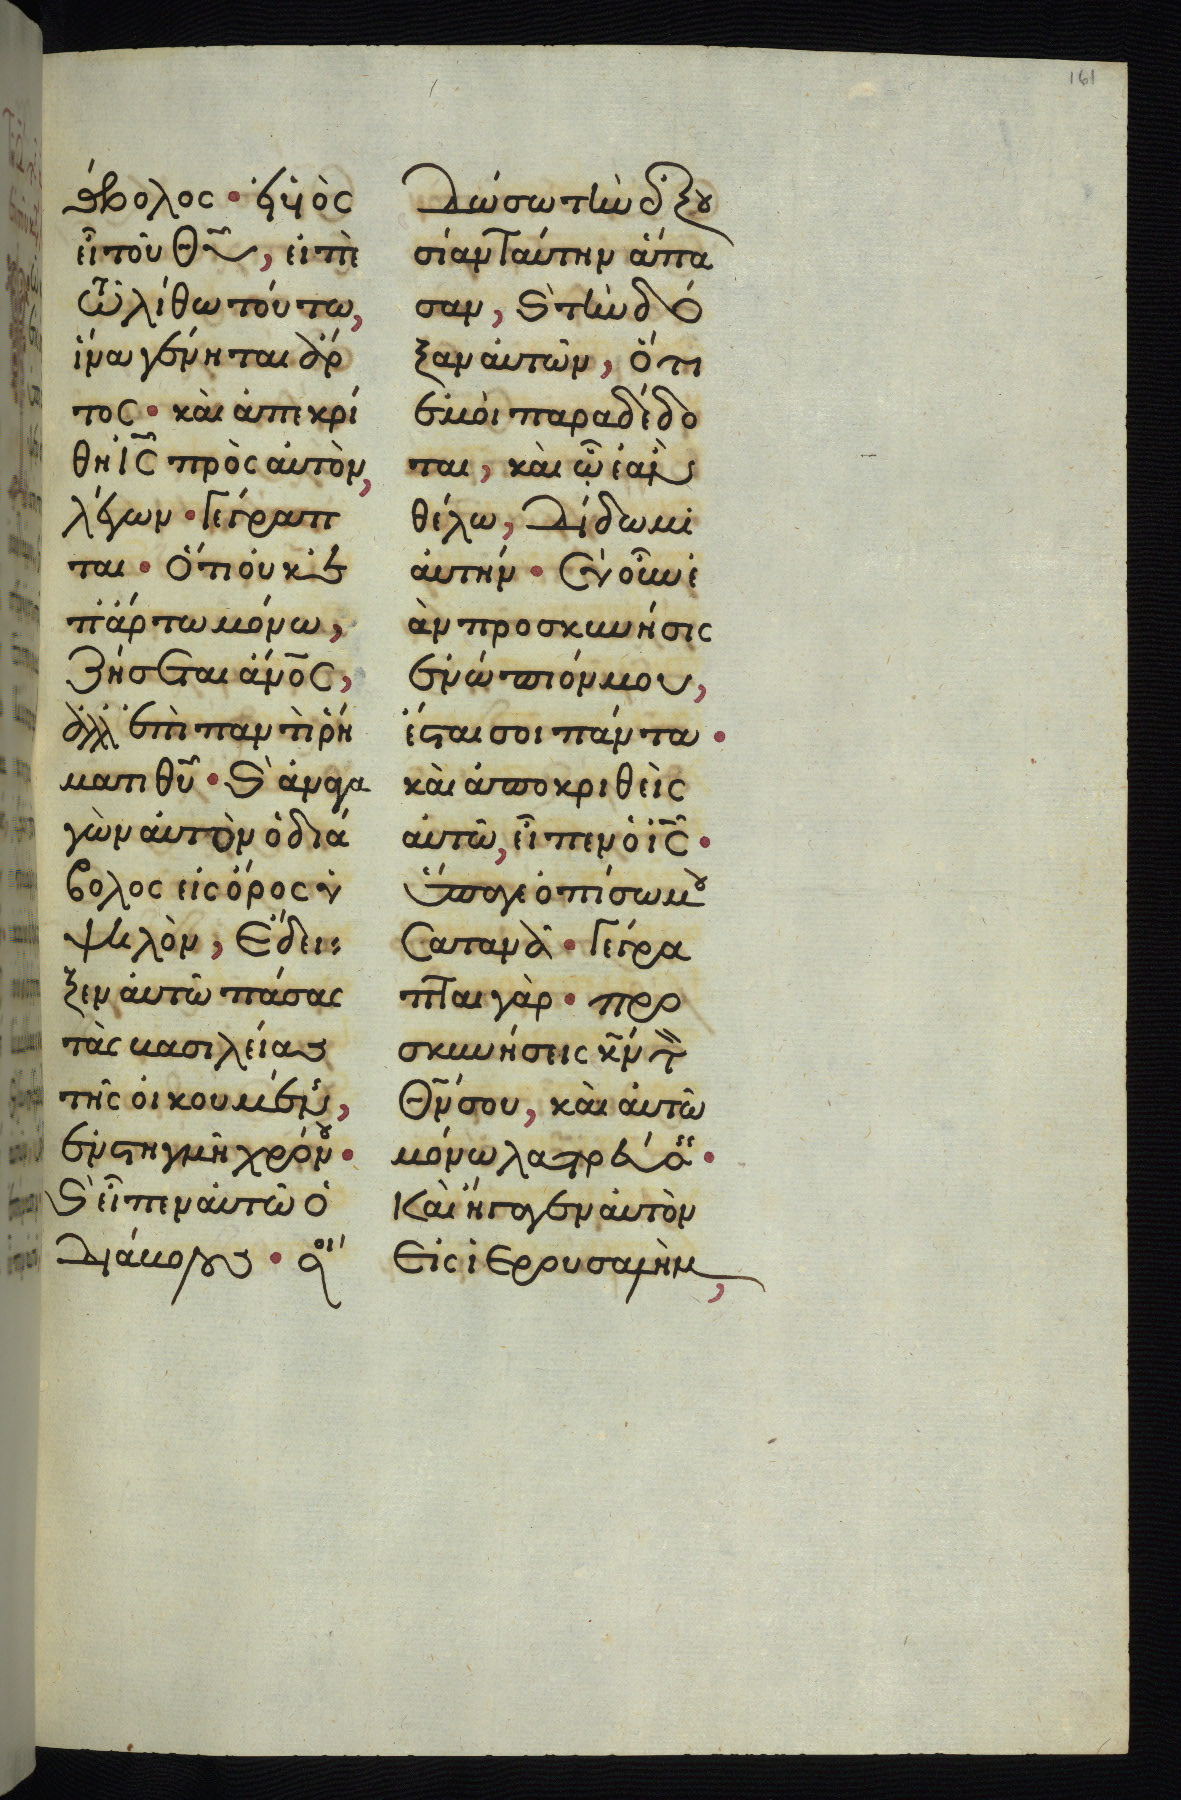 161
άβολος · εἰ ὑιὸς
εἶ τοῦ Θῦ, εἰπὲ
τῶ λίθω τούτω,
ἵνα γένηται ἄρ
τος · καὶ ἀπεκρί
θη ἰς̃ πρὸς αὐτὸν,
λέγων · Γέγραπ
ται · Ὅτι οὐκ ἐ
π' ἄρτω μόνω,
Ζήσεται ἄν̅ος,
ἀλλ' ἐπὶ παντὶ ρή
ματι θῦ · Ϛ ἀναγα
γὼν αὐτὸν ὁ διά
βολος εἰς ὄρος ὑ
ψηλὸν, Ἔδει
ξεν αὐτῶ πάσας
τὰς βασιλείας
τῆς οἰκουμένης,
ἐν στηγμῆ χρόνου ·
Ϛ εἶπεν αὐτῶ ὁ
Διάβολος · σοὶ
Δώσω τὴν ἐξου
σίαν ταύτην ἅπα
σαν, Ϛ τὴν δό
ξαν αὐτῶν, ὅτι
ἐμοὶ παραδέδο
ται, καὶ ὧ ἐὰν
θέλω, Δίδωμι
αὐτήν · Σὺ οὖν ἐ
ὰν προσκυνήσις
ἐνώπιόν μου,
ἔσται σοι πάντα ·
καὶ ἀποκριθεὶς
αὐτῶ, εἶπεν ὁ ἰς̃ ·
Ὕπαγε ὀπίσω μου
Σατανᾶ · Γέγρα
πται γὰρ · προ
σκυνήσεις κν̃ τὸν
Θν̃ σου, καὶ αὐτῶ
μόνω λατρεύσεις ·
Καὶ ἤγαγεν αὐτὸν
Εἰς ἱερουσαλὴμ,